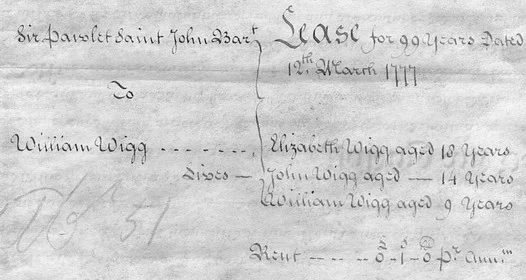 Sir Pawlet Saint John Bart
Lease for 99 Years Dated
12th March 1777
To
William Wigg - - - - - - -
Elizabeth Wigg aged 18 Years
Lives — John Wigg aged — 14 Years
William Wigg aged 9 Years
Rent - - - - 0 - 1 - 0 Pr Annm